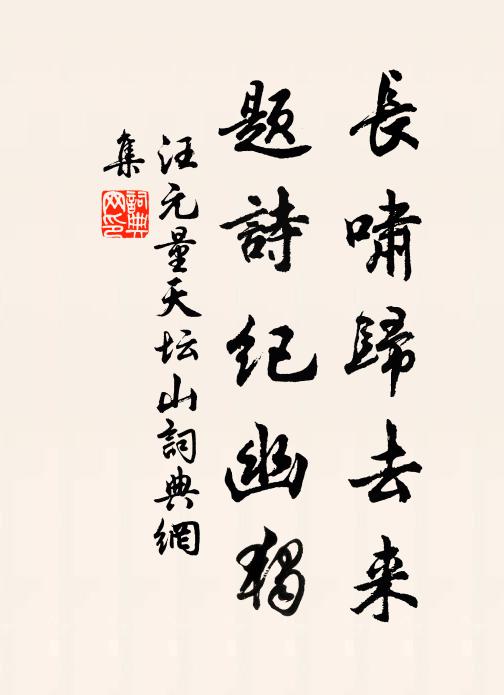 長嘯歸去来
題詩紀幽独
汪元量天坛山詞典網
集
詞典
网印